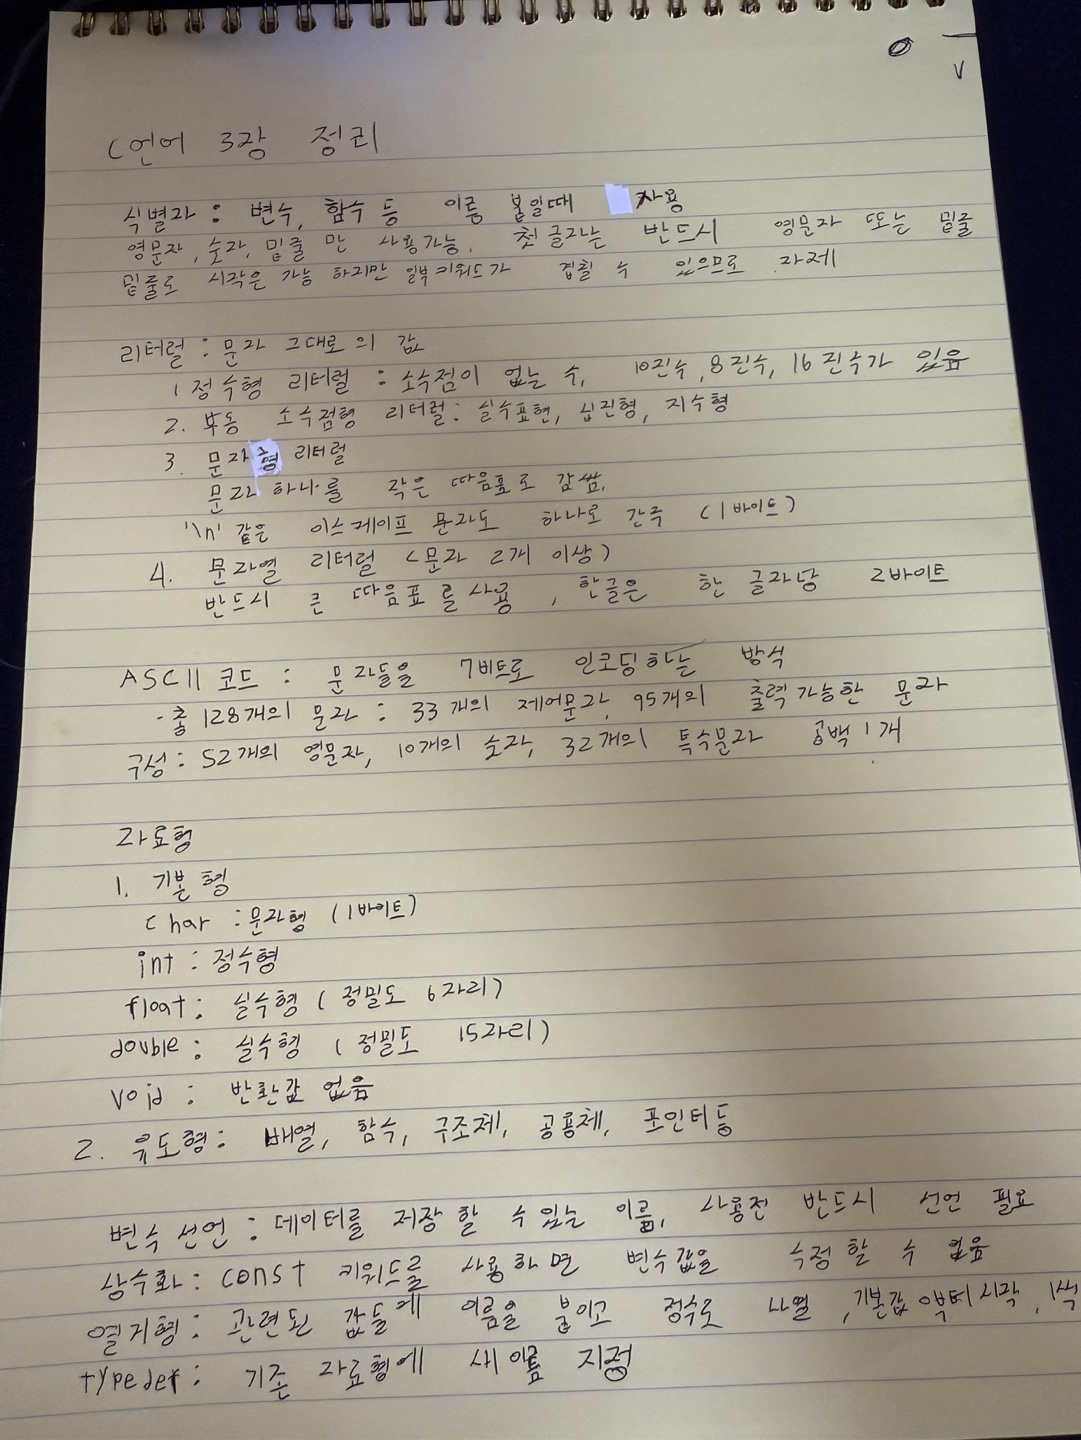 C언어 3장 정리
식별자 : 변수, 함수 등 이름 붙일때 사용
영문자, 숫자, 밑줄 만 사용가능. 첫 글자는 반드시 영문자 또는 밑줄
밑줄로 시작은 가능 하지만 일부키워드가 겹칠 수 있으므로 자제
리터럴 : 문자 그대로의 값
1 정수형 리터럴 : 소수점이 없는 수, 10진수, 8진수, 16진수가 있음
2. 부동 소수점형 리터럴 : 실수표현, 십진형, 지수형
3. 문자형 리터럴
문자 하나를 작은 따음표로 감쌈.
'\n' 같은 이스케이프 문자도 하나로 간주 (1바이트)
4. 문자열 리터럴 (문자 2개 이상)
반드시 큰 따음표를 사용, 한글은 한 글자당 2바이트
ASCII 코드 : 문자들을 7비트로 인코딩하는 방식
- 총 128개의 문자 : 33개의 제어문자, 95개의 출력가능한 문자
구성 : 52개의 영문자, 10개의 숫자, 32개의 특수문자 공백 1개
자료형
1. 기본형
char : 문자형 (1바이트)
int : 정수형
float : 실수형 (정밀도 6자리)
double : 실수형 (정밀도 15자리)
void : 반환값 없음
2. 유도형 : 배열, 함수, 구조체, 공용체, 포인터 등
변수 선언 : 데이터를 저장 할 수 있는 이름, 사용전 반드시 선언 필요
상수화 : const 키워드를 사용하면 변수값을 수정 할 수 없음
열거형 : 관련된 값들에 이름을 붙이고 정수로 나열, 기본값 0부터 시작, 1씩
typedef : 기존 자료형에 새 이름 지정